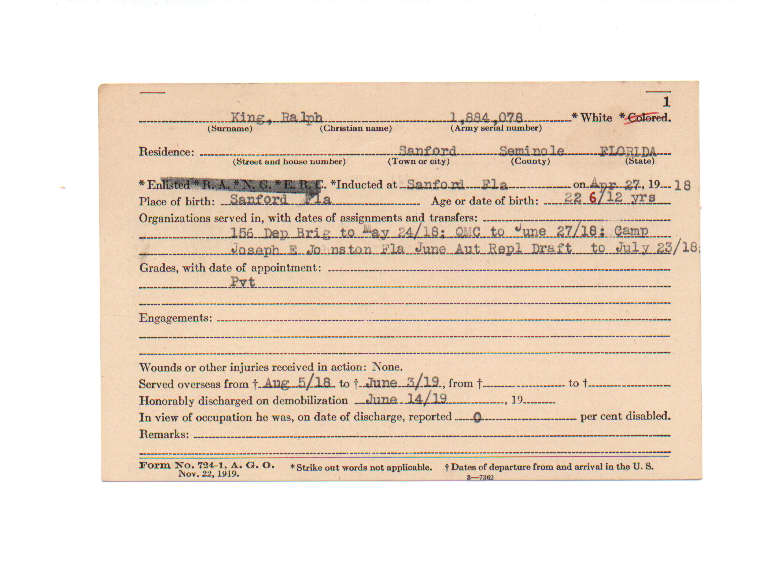 1
King, Ralph 1,884,078 * White * Colored.
(Surname) (Christian name) (Army serial number)
Residence: Sanford Seminole FLORIDA
(Street and house number) (Town or city) (County) (State)
* Enlisted * R. A. * N. G. * E. R. C. * Inducted at Sanford Fla on Apr 27, 19 18
Place of birth: Sanford Fla Age or date of birth: 22 6/12 yrs
Organizations served in, with dates of assignments and transfers:
156 Dep Brig to May 24/18; QMC to June 27/18; Camp
Joseph E Johnston Fla June Aut Repl Draft to July 23/18;
Grades, with date of appointment:
Pvt
Engagements:
Wounds or other injuries received in action: None.
Served overseas from † Aug 5/18 to † June 3/19, from † to †
Honorably discharged on demobilization June 14/19, 19
In view of occupation he was, on date of discharge, reported 0 per cent disabled.
Remarks:
Form No. 724-1, A. G. O. * Strike out words not applicable. † Dates of departure from and arrival in the U. S.
Nov. 22, 1919. 3—7362